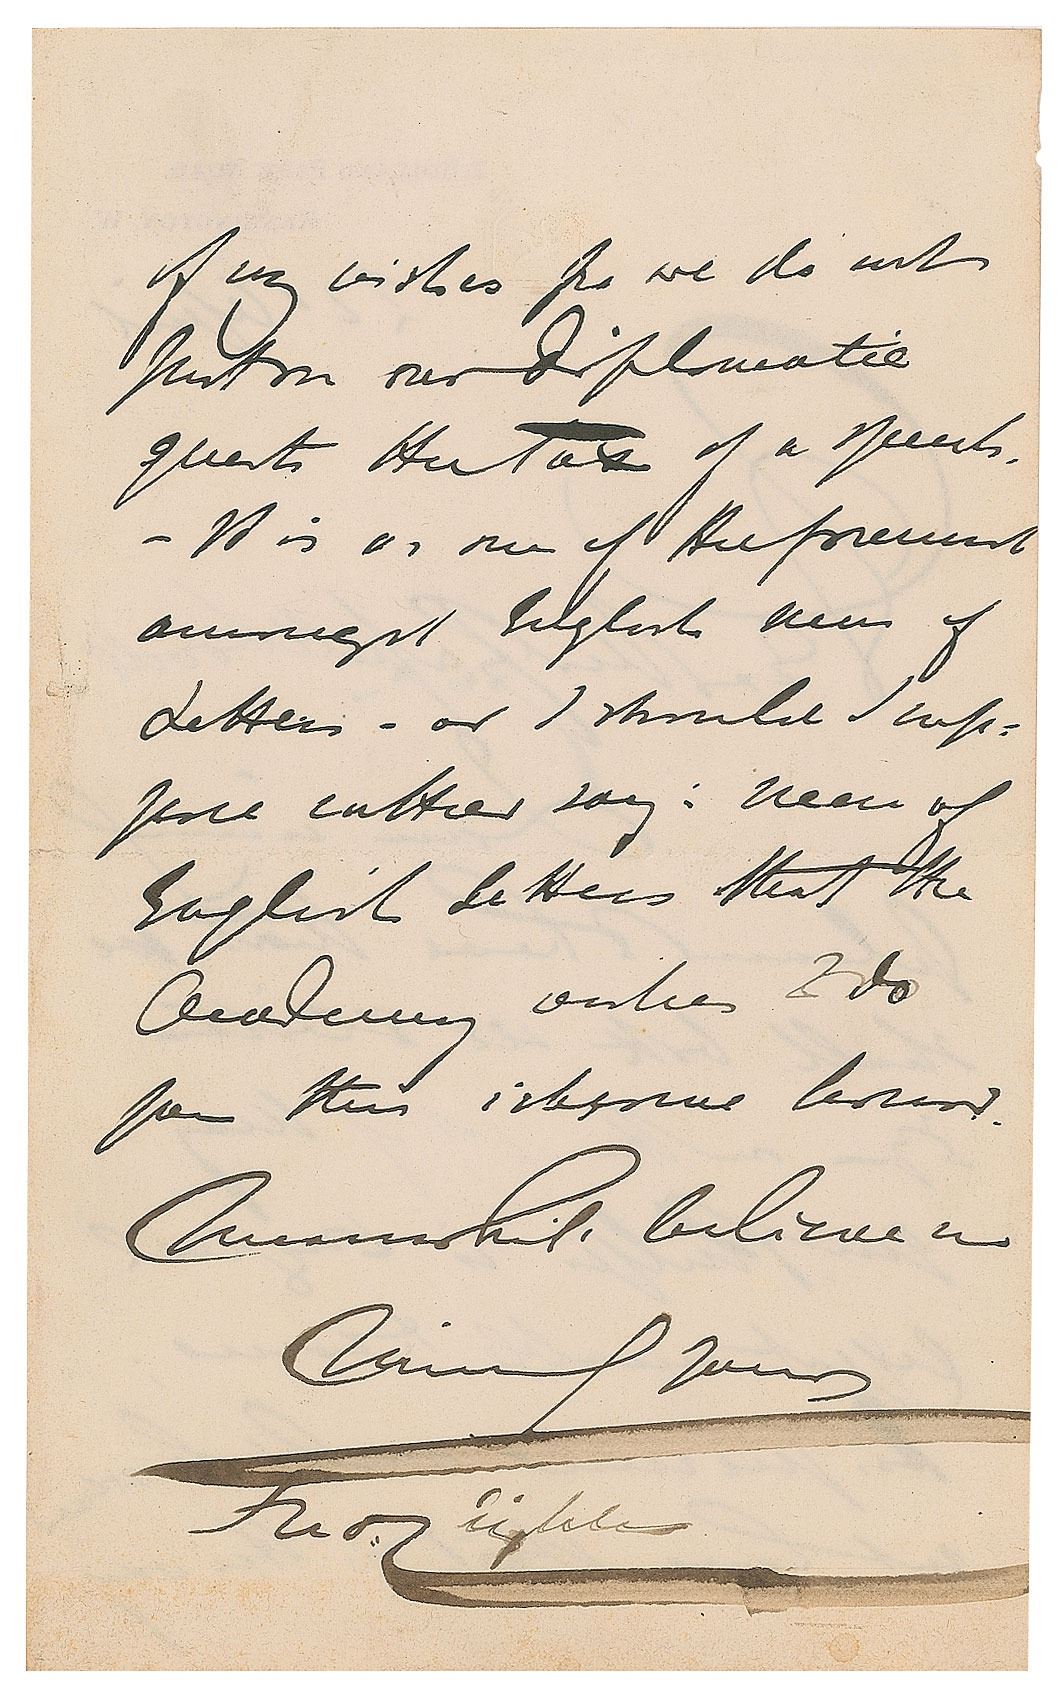 of my wishes for we do not
put on our Diplomatic
guests the Tax of a speech.
- It is as one of the foremost
amongst English men of
Letters - or I should I sup=
pose rather say: men of
English Letters that the
Academy wishes to do
you this honour.
Meanwhile believe me
Sincerely yours
Fred Leighton